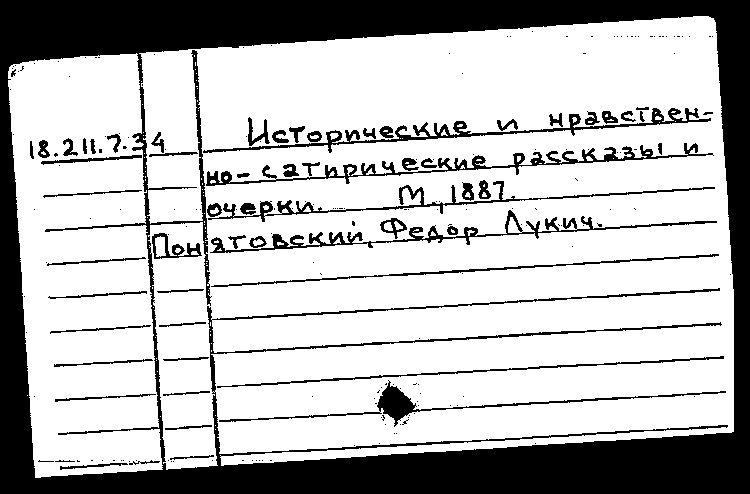 18.211.7.34 Исторические и нравствен-
но-сатирические рассказы и
очерки. М., 1887.
Понятовский, Федор Лукич.